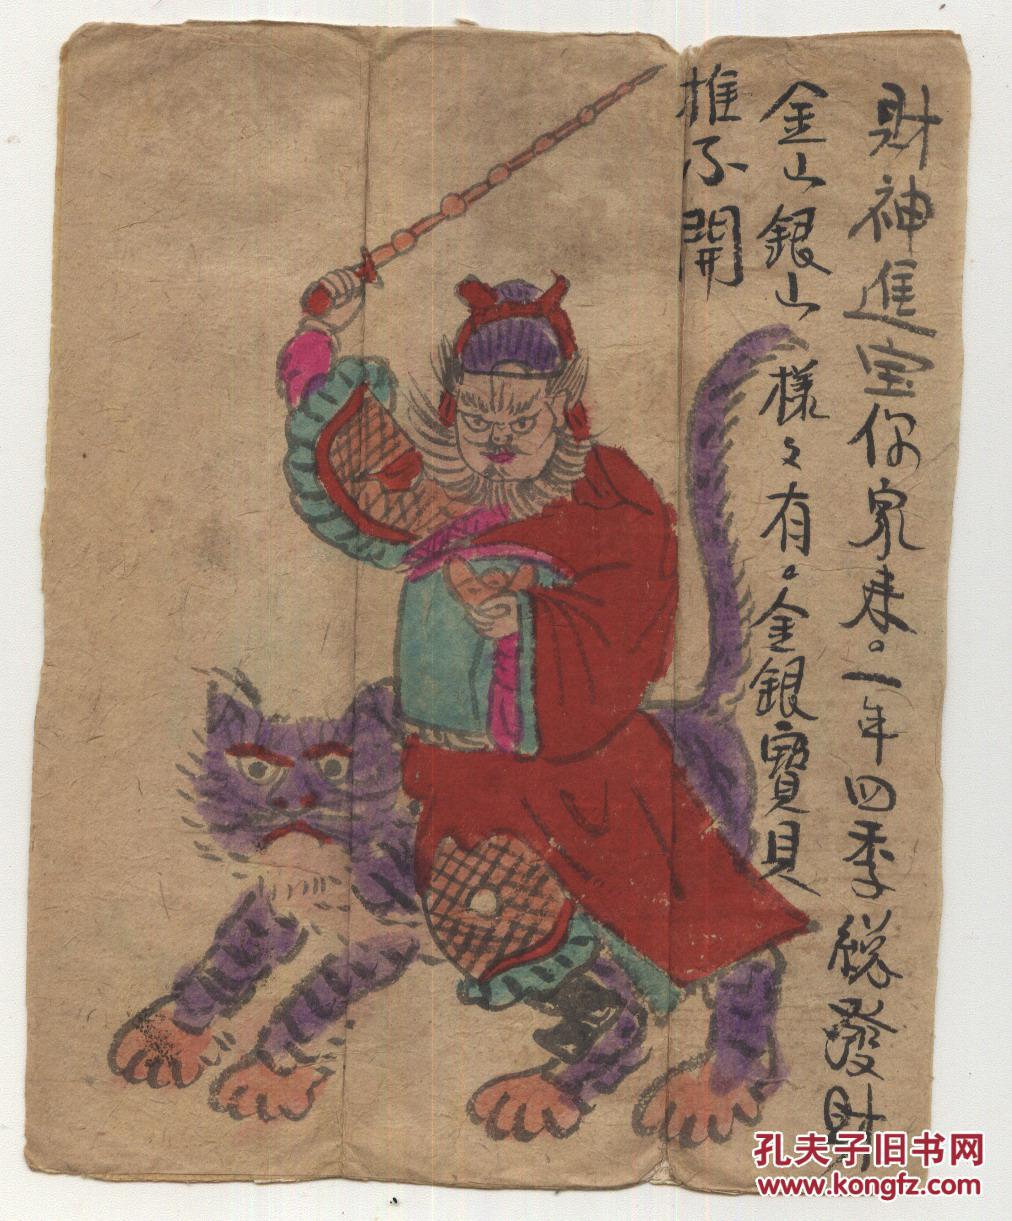 財神進宝你家来。一年四季縂發財
金山銀山樣〻有。金銀寶貝
推不開
孔夫子旧书网
www.kongfz.com